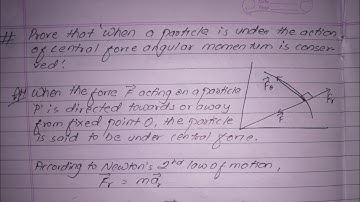 # Prove that 'when a particle is under the action
of central force angular momentum is conser
ved'.
When the force F⃗ acting on a particle
'P' is directed towards or away
from fixed point O, the particle
is said to be under central force.
F⃗θ
F⃗r
r⃗
According to Newton's 2nd law of motion,
F⃗r = ma⃗r